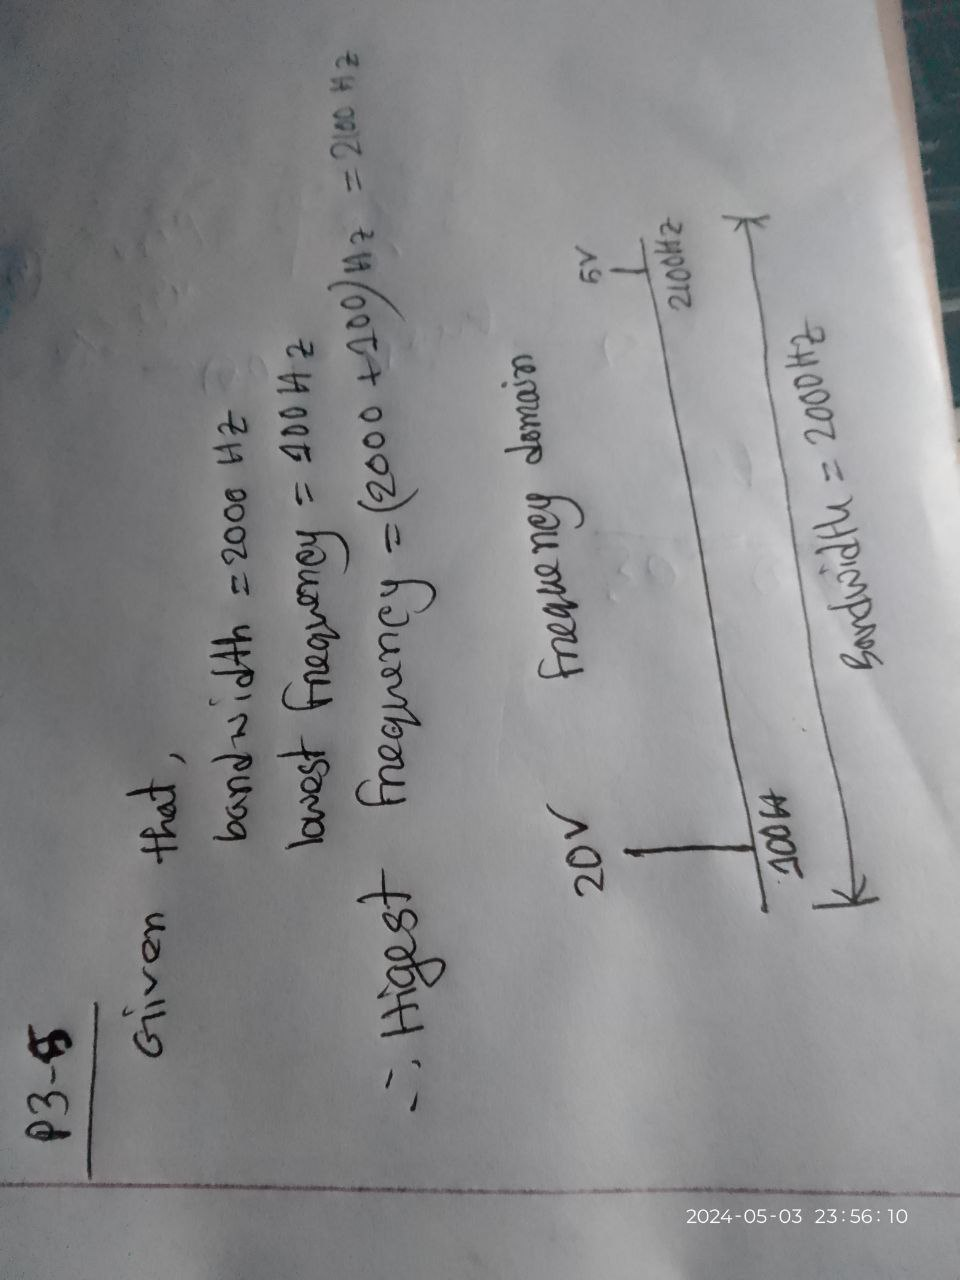 P3-5
Given that,
bandwidth = 2000 HZ
lowest frequency = 100 HZ
∴ Higest frequency = (2000 + 100) Hz = 2100 HZ
Frequency domain
20V
5V
100H
2100HZ
Bandwidth = 2000HZ
2024-05-03 23:56:10